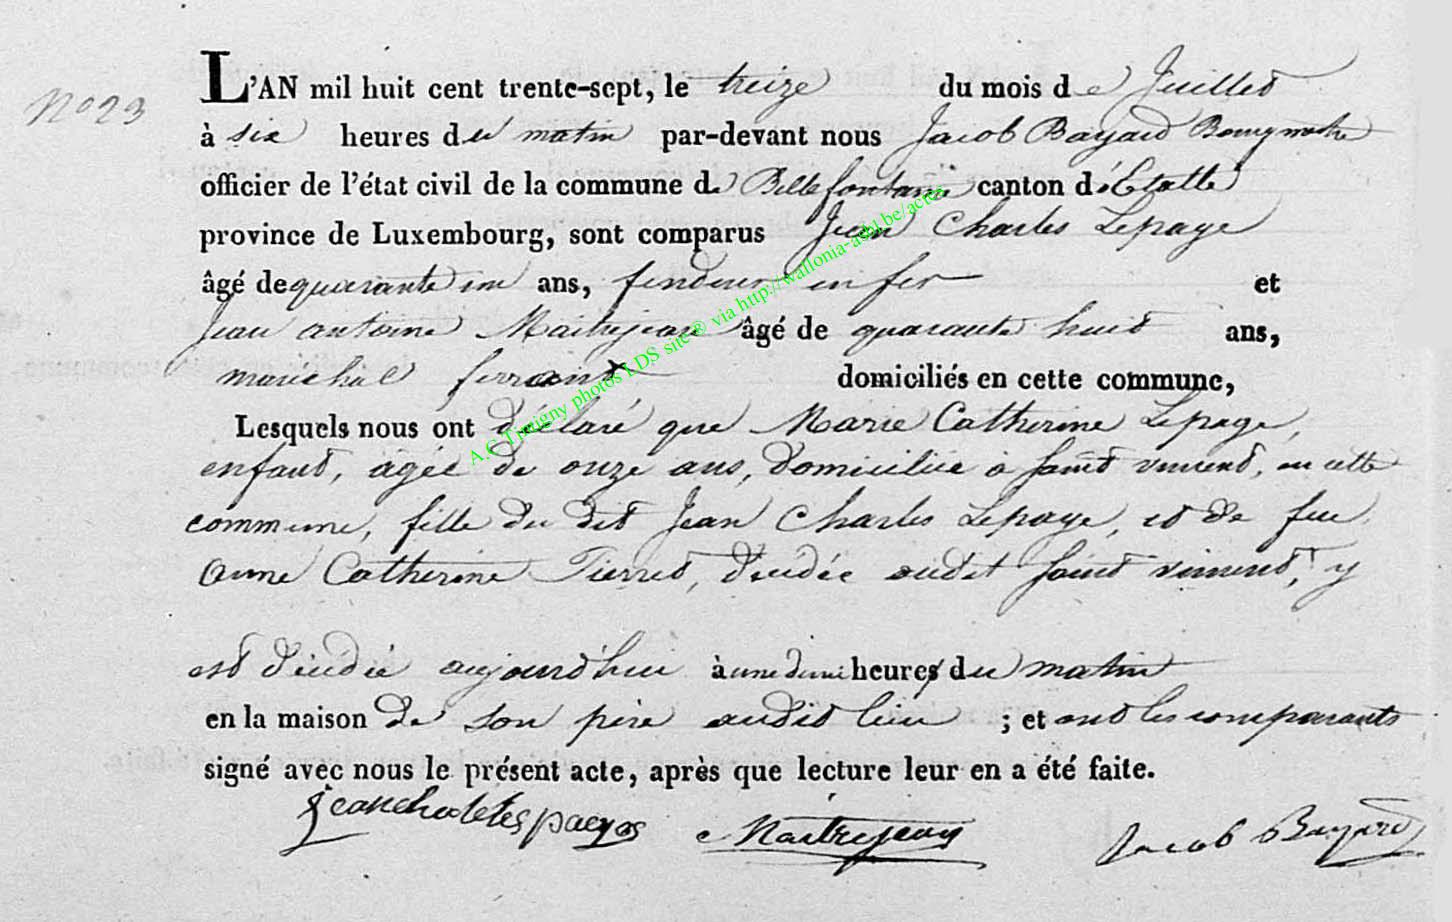 N° 23
L'AN mil huit cent trente-sept, le treize du mois de Juillet
à six heures du matin par-devant nous Jacob Bayard Bourgmestre
officier de l'état civil de la commune de Bellefontaine canton d'Etalle
province de Luxembourg, sont comparus Jean Charles Lepage
âgé de quarante un ans, fendeur en fer et
Jean antoine Maitrejean âgé de quarante huit ans,
maréchal ferrant domiciliés en cette commune,
Lesquels nous ont déclaré que Marie Catherine Lepage,
enfant, agée de onze ans, domiciliée à saint vincent, en cette
commune, fille du dit Jean Charles Lepage, et de feue
anne Catherine Pierret, décédée audit saint vincent, y
est décédée aujourd'hui à une demi heure du matin
en la maison de son père audit lieu ; et ont les comparants
signé avec nous le présent acte, après que lecture leur en a été faite.
Maitrejean Jacob Bayard
A.C Tintigny photos LDS site® via http://wallonia-asbl.be/actes